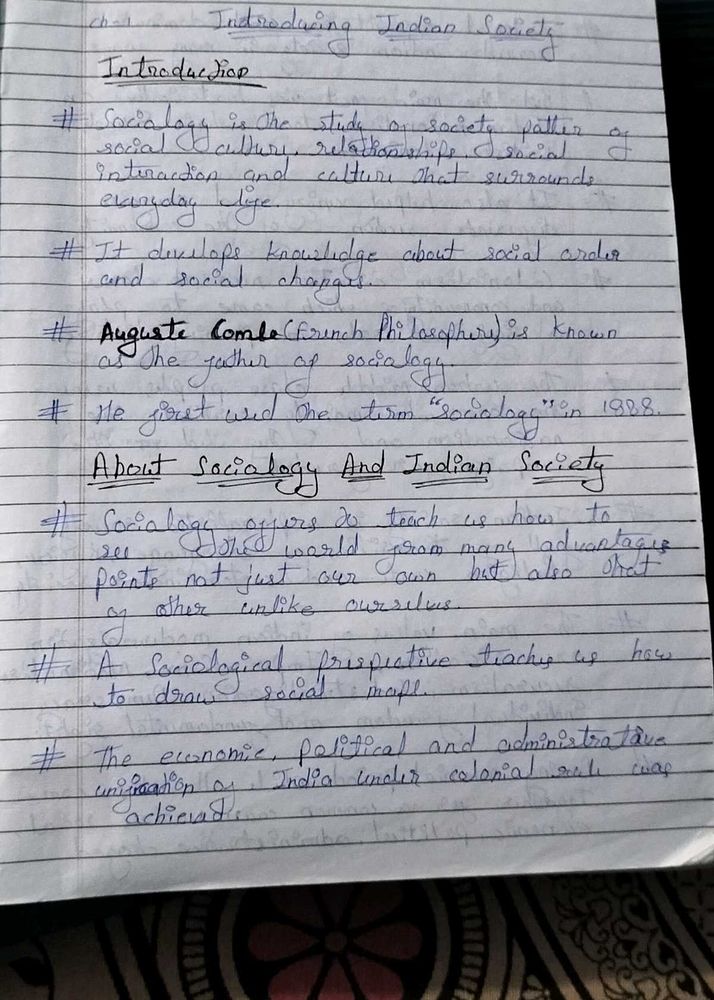 ch-1 Indroducing Indian Society
Introduction
# Socialogy is the study of society patter of
social culture, relationships, social
interaction and culture that surrounds
everyday life.
# It develops knowledge about social order
and social changes.
# Auguste Comte (French Philosopher) is known
as the father of socialogy.
# He first used the term "sociology" in 1988.
About Socialogy And Indian Society
# Socialogy offers to teach us how to
see the world from many advantages
points not just our own but also that
of other unlike ourselves.
# A Sociological prespective teaches us how
to draw social maps.
# The economic, political and administrative
unification of India under colonial rule was
achieved.